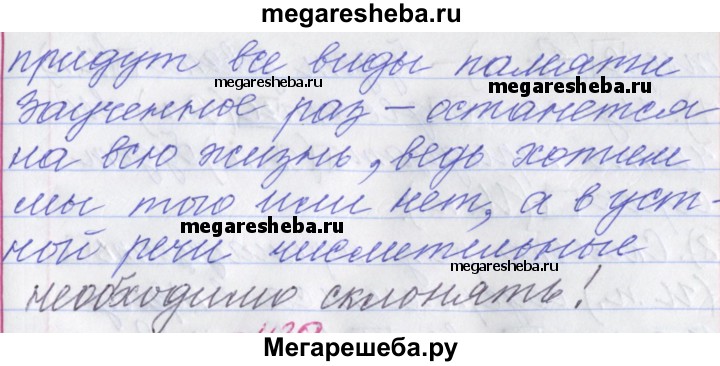 megaresheba.ru
придут все виды памяти
megaresheba.ru
megaresheba.ru
Заученное раз – останется
на всю жизнь, ведь хотим
мы того или нет, а в уст-
megaresheba.ru
ной речи числительные
megaresheba.ru
необходимо склонять!
Мегарешеба.ру